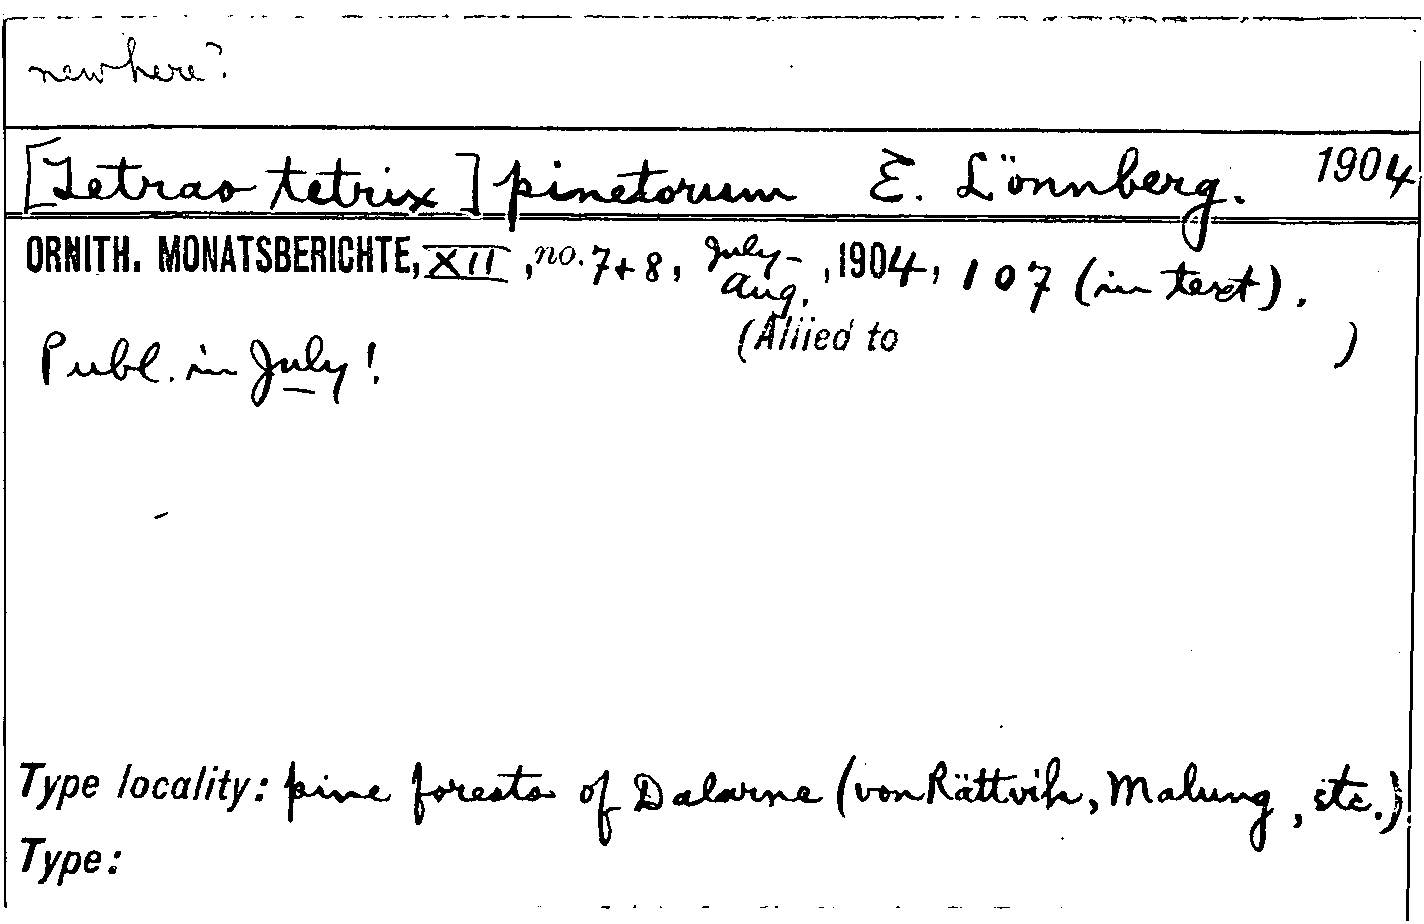 new here?
[Tetrao tetrix] pinetorum E. Lönnberg. 1904
ORNITH. MONATSBERICHTE, XII, no. 7+8, July-Aug., 1904, 107 (in text).
(Allied to )
Publ. in July!
Type locality: pine forests of Dalarne (von Rättvik, Malung, etc.)
Type: